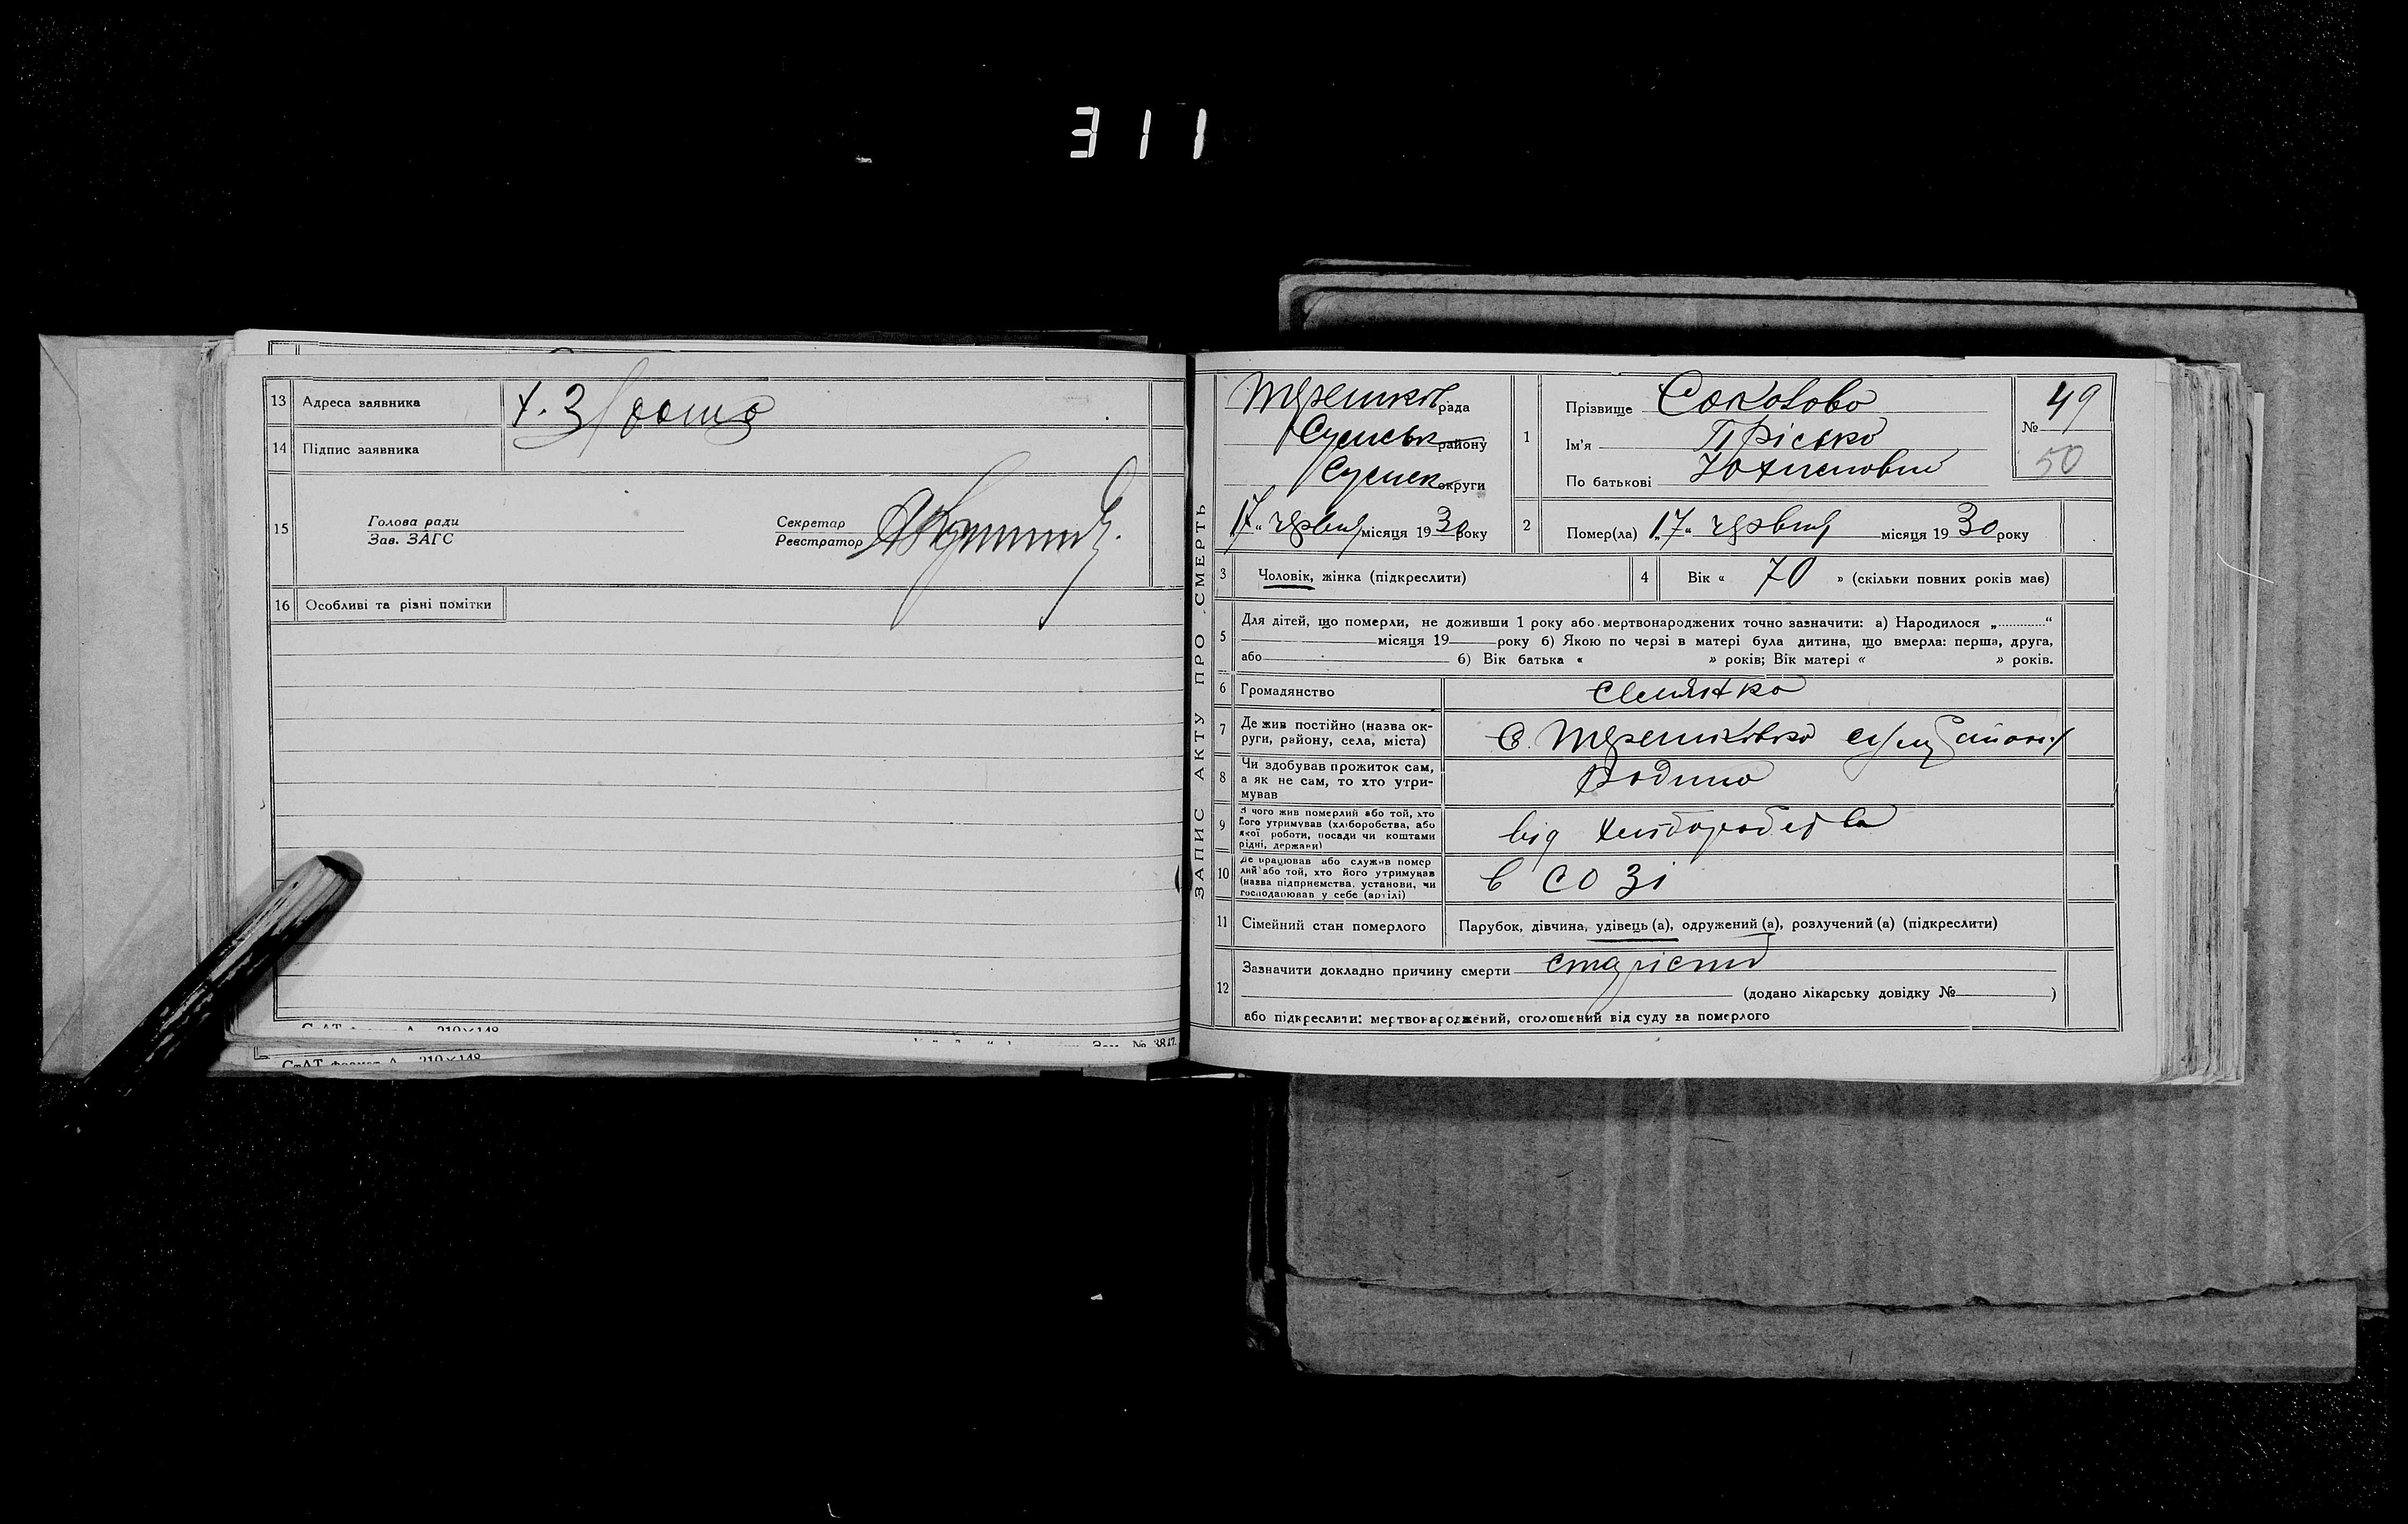 311
13 Адреса заявника
14 Підпис заявника
15 Голова ради
Зав. ЗАГС
Секретар
Реєстратор
16 Особливі та різні помітки
СтАТ формат А 210×148
СтАТ формат А 210×148
Зам. № 3817
ЗАПИС АКТУ ПРО СМЕРТЬ
Терешков рада
Сумськ району
Сумск округи
„17“ червня місяця 1930 року
1 Прізвище Соколова
Ім'я Пріська
По батькові Юхимовна
№ 49
50
2 Помер(ла) „17“ червня місяця 1930 року
3 Чоловік, жінка (підкреслити)
4 Вік « 70 » (скільки повних років має)
5 Для дітей, що померли, не доживши 1 року або мертвонароджених точно зазначити: а) Народилося „............“
місяця 19 року б) Якою по черзі в матері була дитина, що вмерла: перша, друга,
або б) Вік батька « » років; Вік матері « » років.
6 Громадянство селянка
7 Де жив постійно (назва ок-
руги, району, села, міста)
С. Терешківка
8 Чи здобував прожиток сам,
а як не сам, то хто утри-
мував
родина
9 З чого жив померлий або той, хто
його утримував (хліборобства, або
якої роботи, посади чи коштами
рідні, держави)
від хліборобства
10 Де працював або служив помер
лий або той, хто його утримував
(назва підприємства, установи, чи
господарював у себе (артілі)
в СОЗі
11 Сімейний стан померлого
Парубок, дівчина, удівець (а), одружений (а), розлучений (а) (підкреслити)
12 Зазначити докладно причину смерти старість
(додано лікарську довідку № )
або підкреслити: мертвонароджений, оголошений від суду за померлого